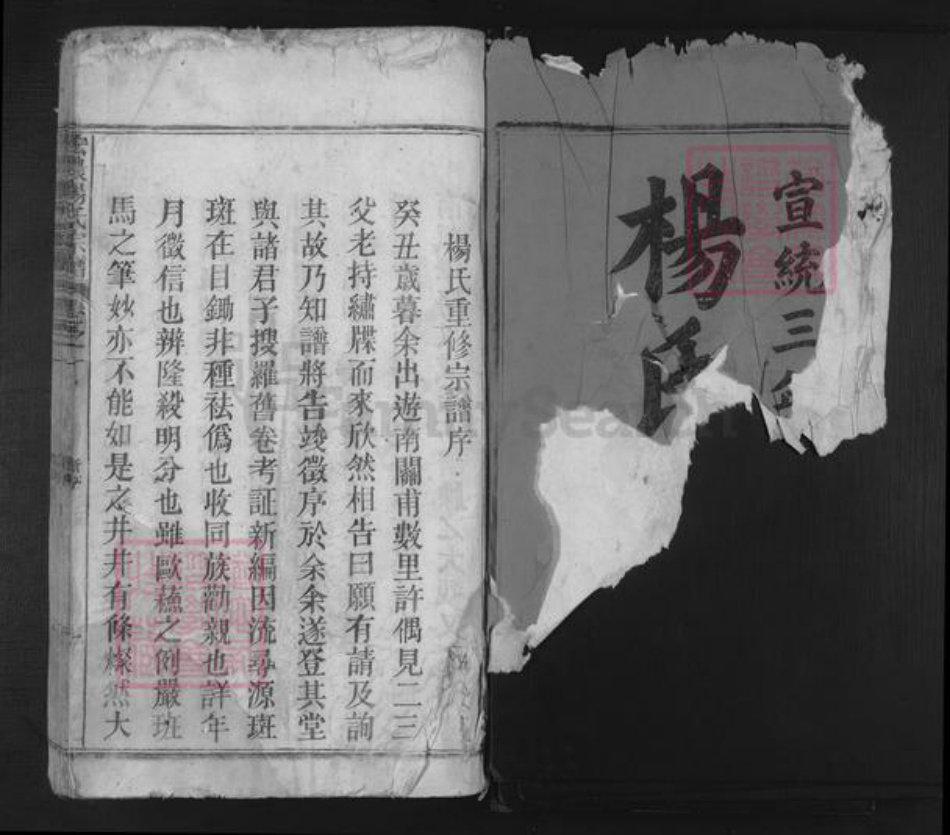 宣統三年
楊氏
楊氏重修宗譜序
癸丑歲暮余出遊南關甫數里許偶見二三
父老持繡牒而來欣然相告曰願有請及詢
其故乃知譜將告竣徵序於余余遂登其堂
與諸君子搜羅舊卷考証新編因流尋源斑
斑在目鋤非種祛僞也收同族勸親也詳年
月徵信也辨隆殺明分也雖歐蘇之例嚴班
馬之筆妙亦不能如是之井井有條燦然大
FamilySearch